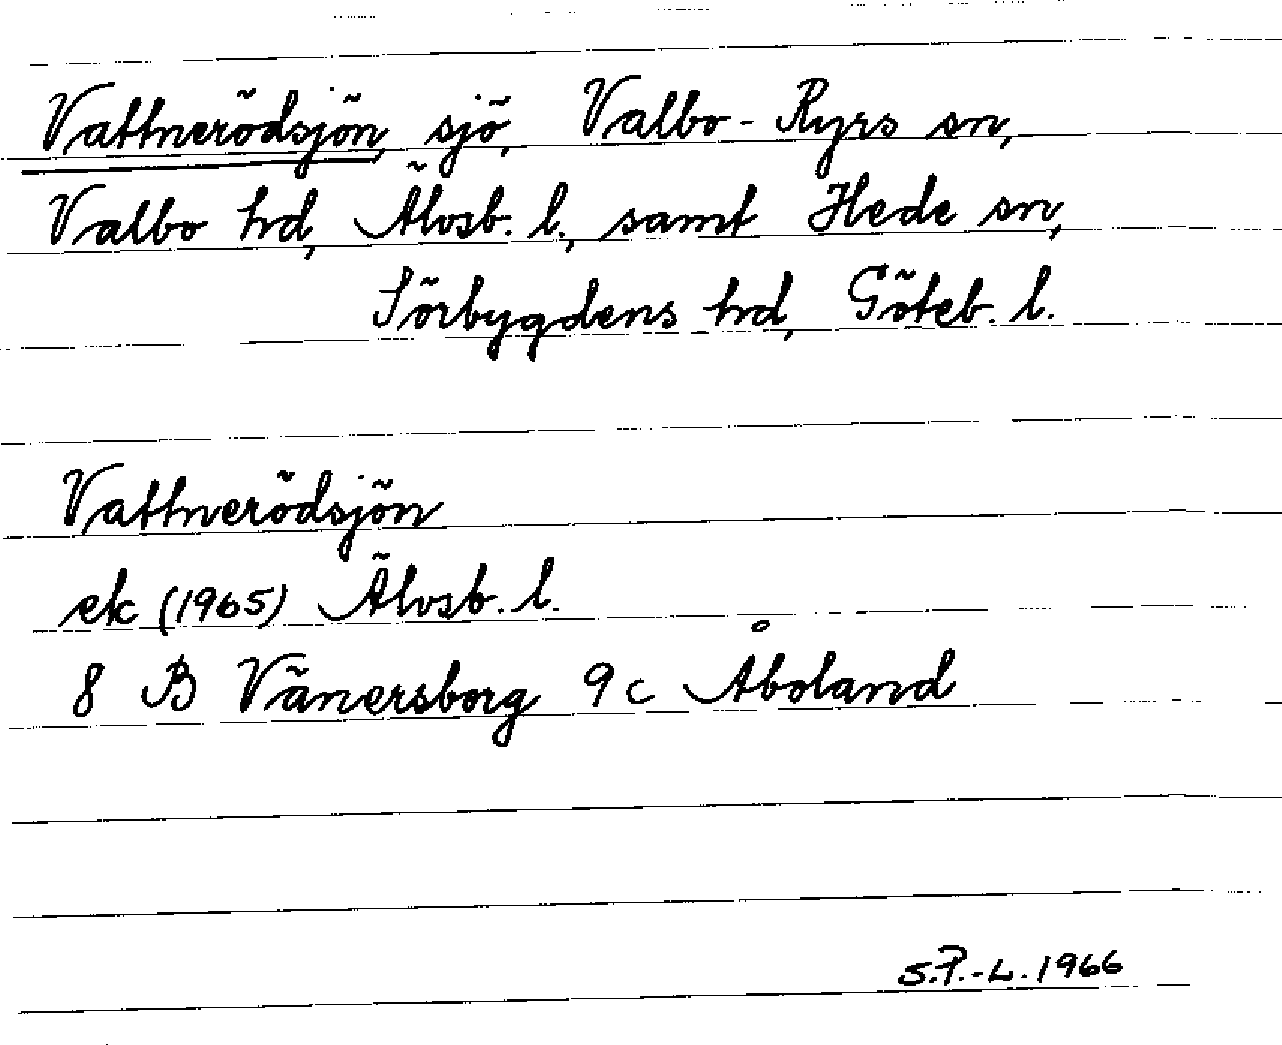 Vattnerödsjön, sjö, Valbo-Ryrs sn,
Valbo hd, Älvsb. l., samt Hede sn,
Sörbygdens hd, Göteb. l.
Vattnerödsjön
ek (1965) Älvsb. l.
8 B Vänersborg 9c Åboland
S.P.-L. 1966